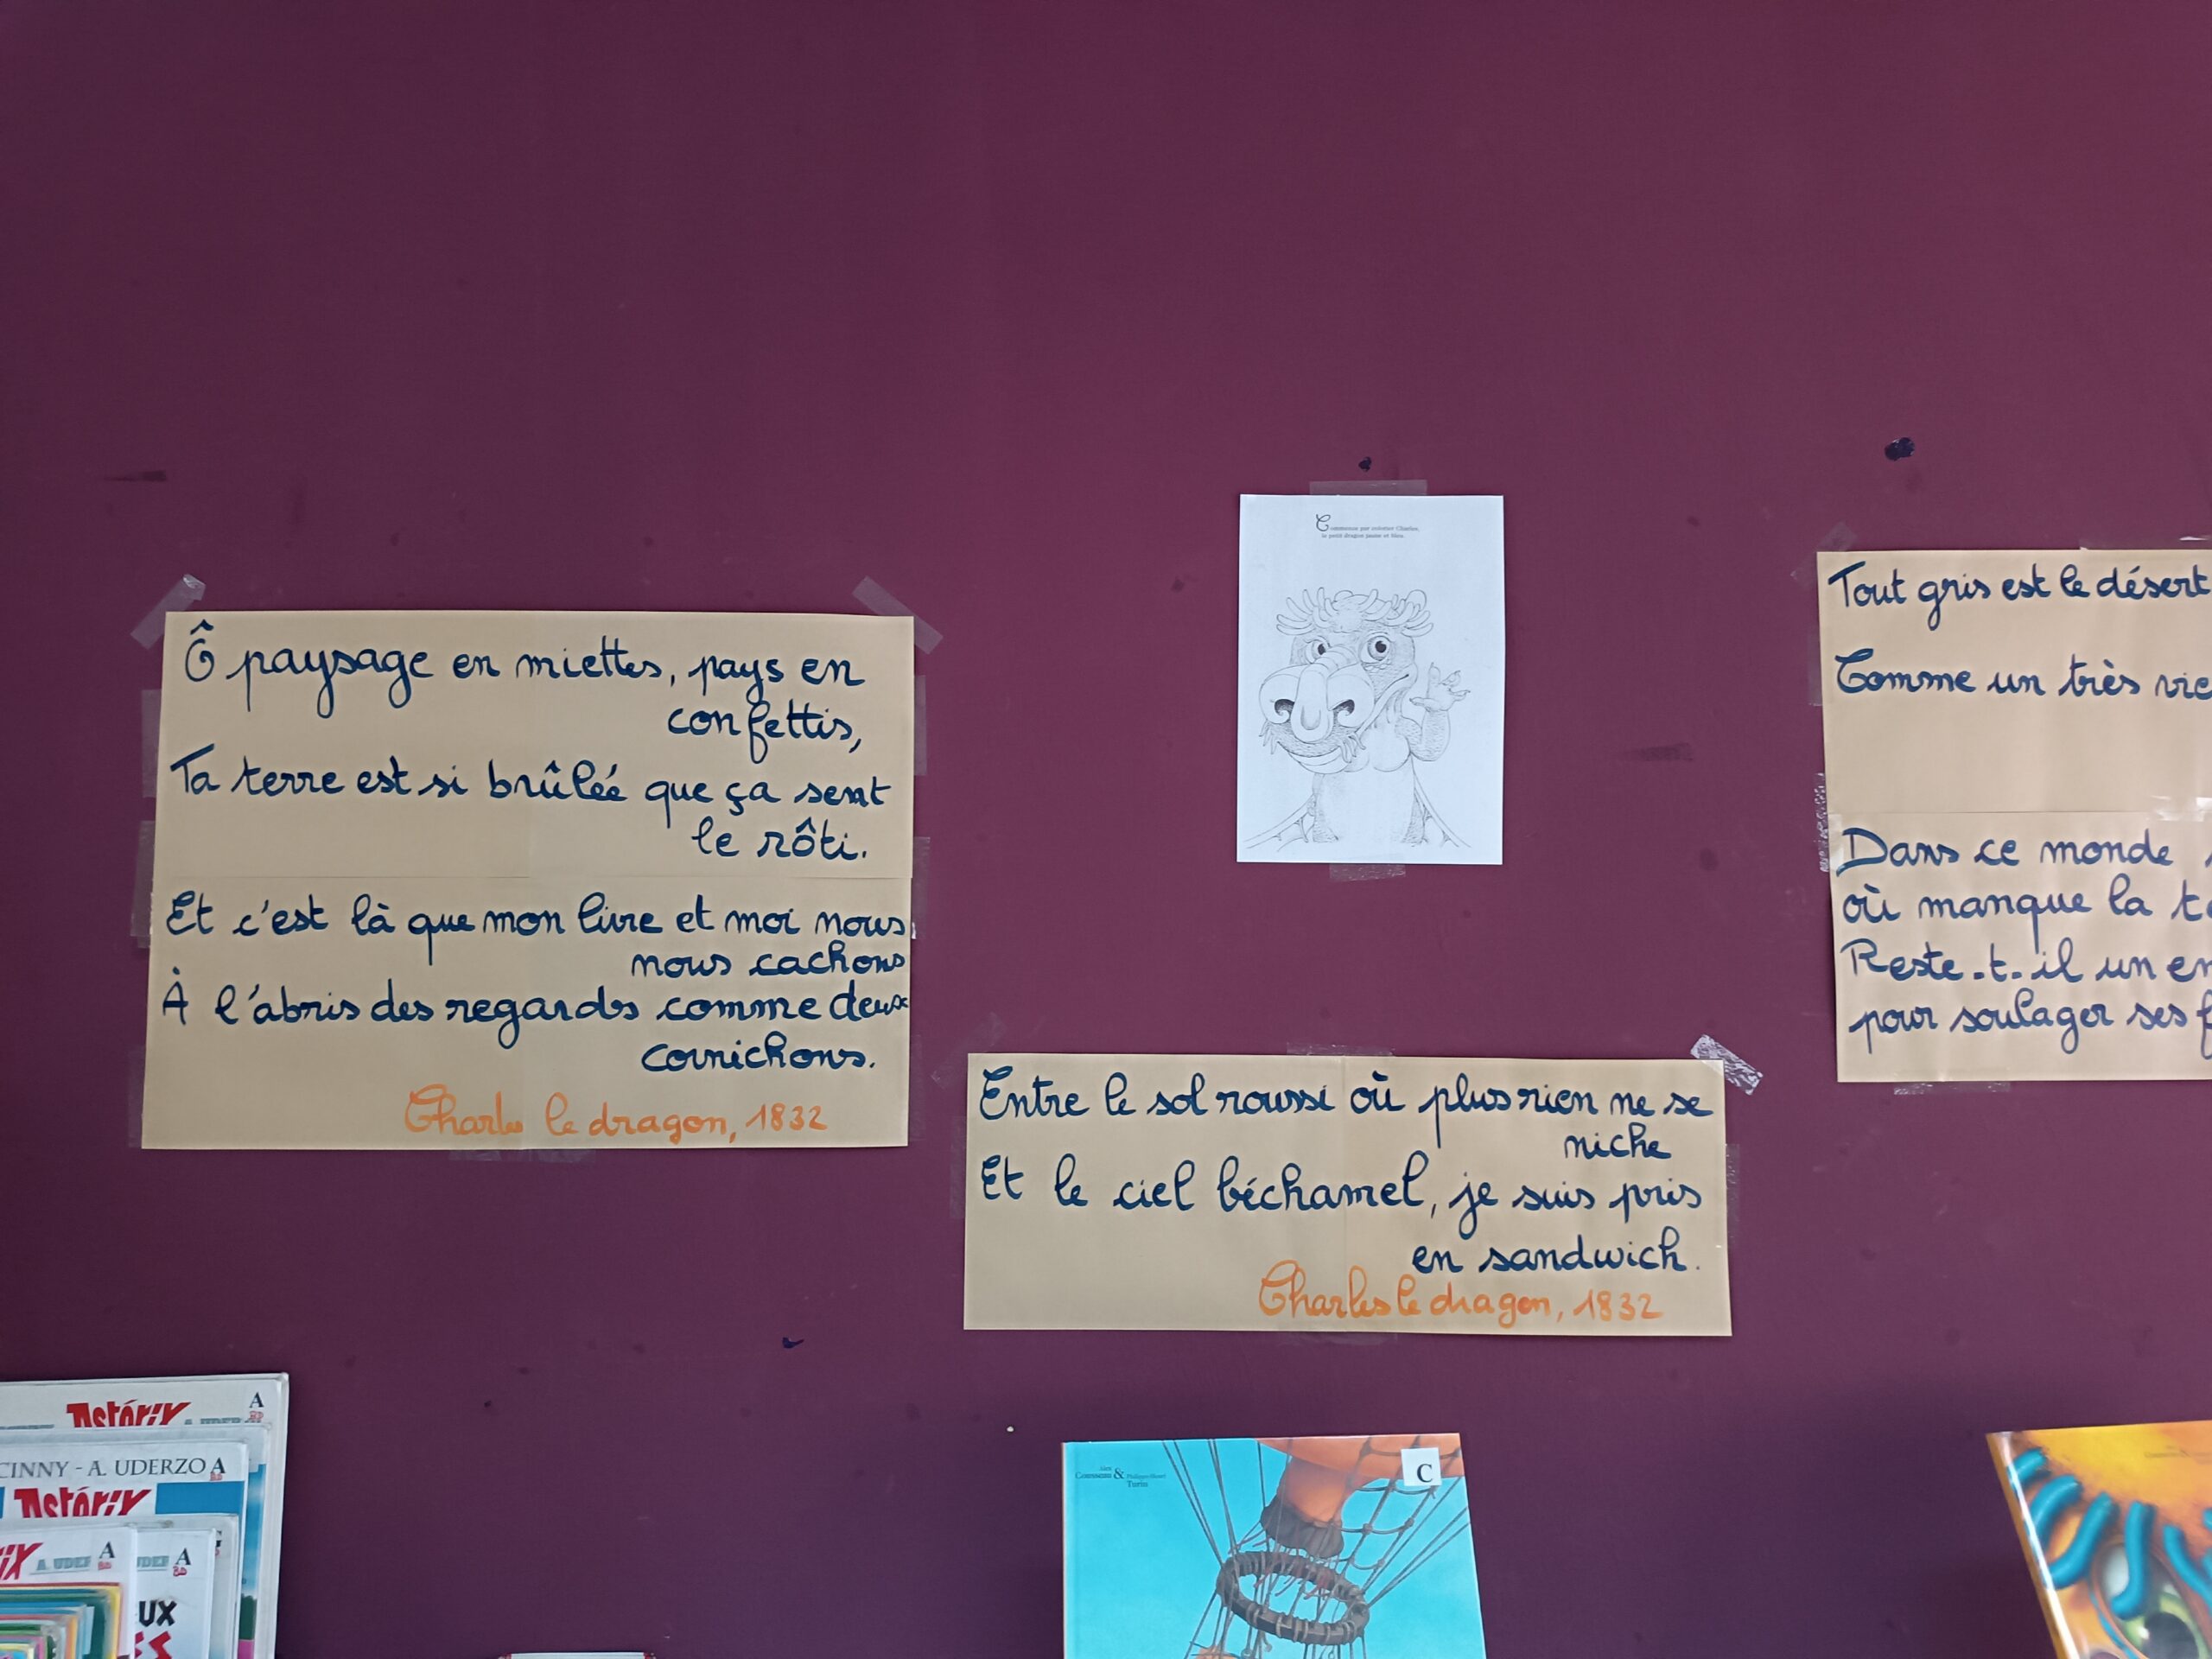 Ô paysage en miettes, pays en
confettis,
Ta terre est si brûlée que ça sent
le rôti.
Et c'est là que mon livre et moi nous
nous cachons
À l'abris des regards comme deux
cornichons.
Charles le dragon, 1832
Commence par colorier Charles,
le petit dragon jaune et bleu.
Entre le sol roussi où plus rien ne se
niche
Et le ciel béchamel, je suis pris
en sandwich.
Charles le dragon, 1832
Tout gris est le désert
Comme un très
Dans ce monde
où manque la
Reste-t-il un
pour soulager ses
Astérix
A
BD
CINNY - A. UDERZO A
Astérix
A. UDE
A
BD
A
BD
UX
Alex
Cousseau & Philippe-Henri
Turin
C